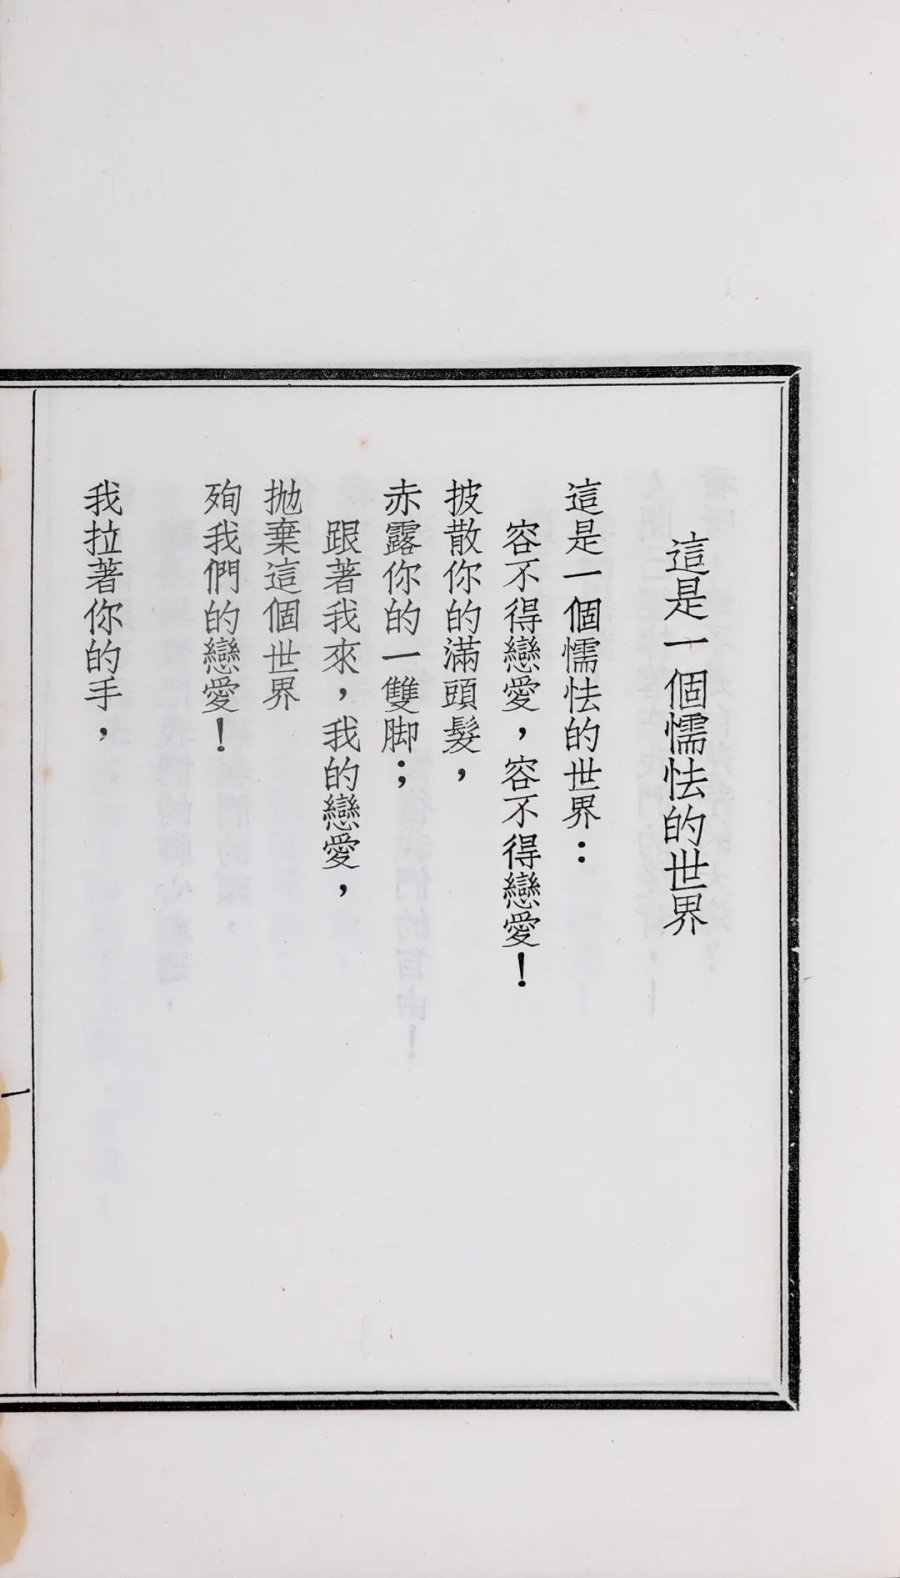 這是一個懦怯的世界
這是一個懦怯的世界：
容不得戀愛，容不得戀愛！
披散你的滿頭髮，
赤露你的一雙脚；
跟著我來，我的戀愛，
拋棄這個世界
殉我們的戀愛！
我拉著你的手，
一